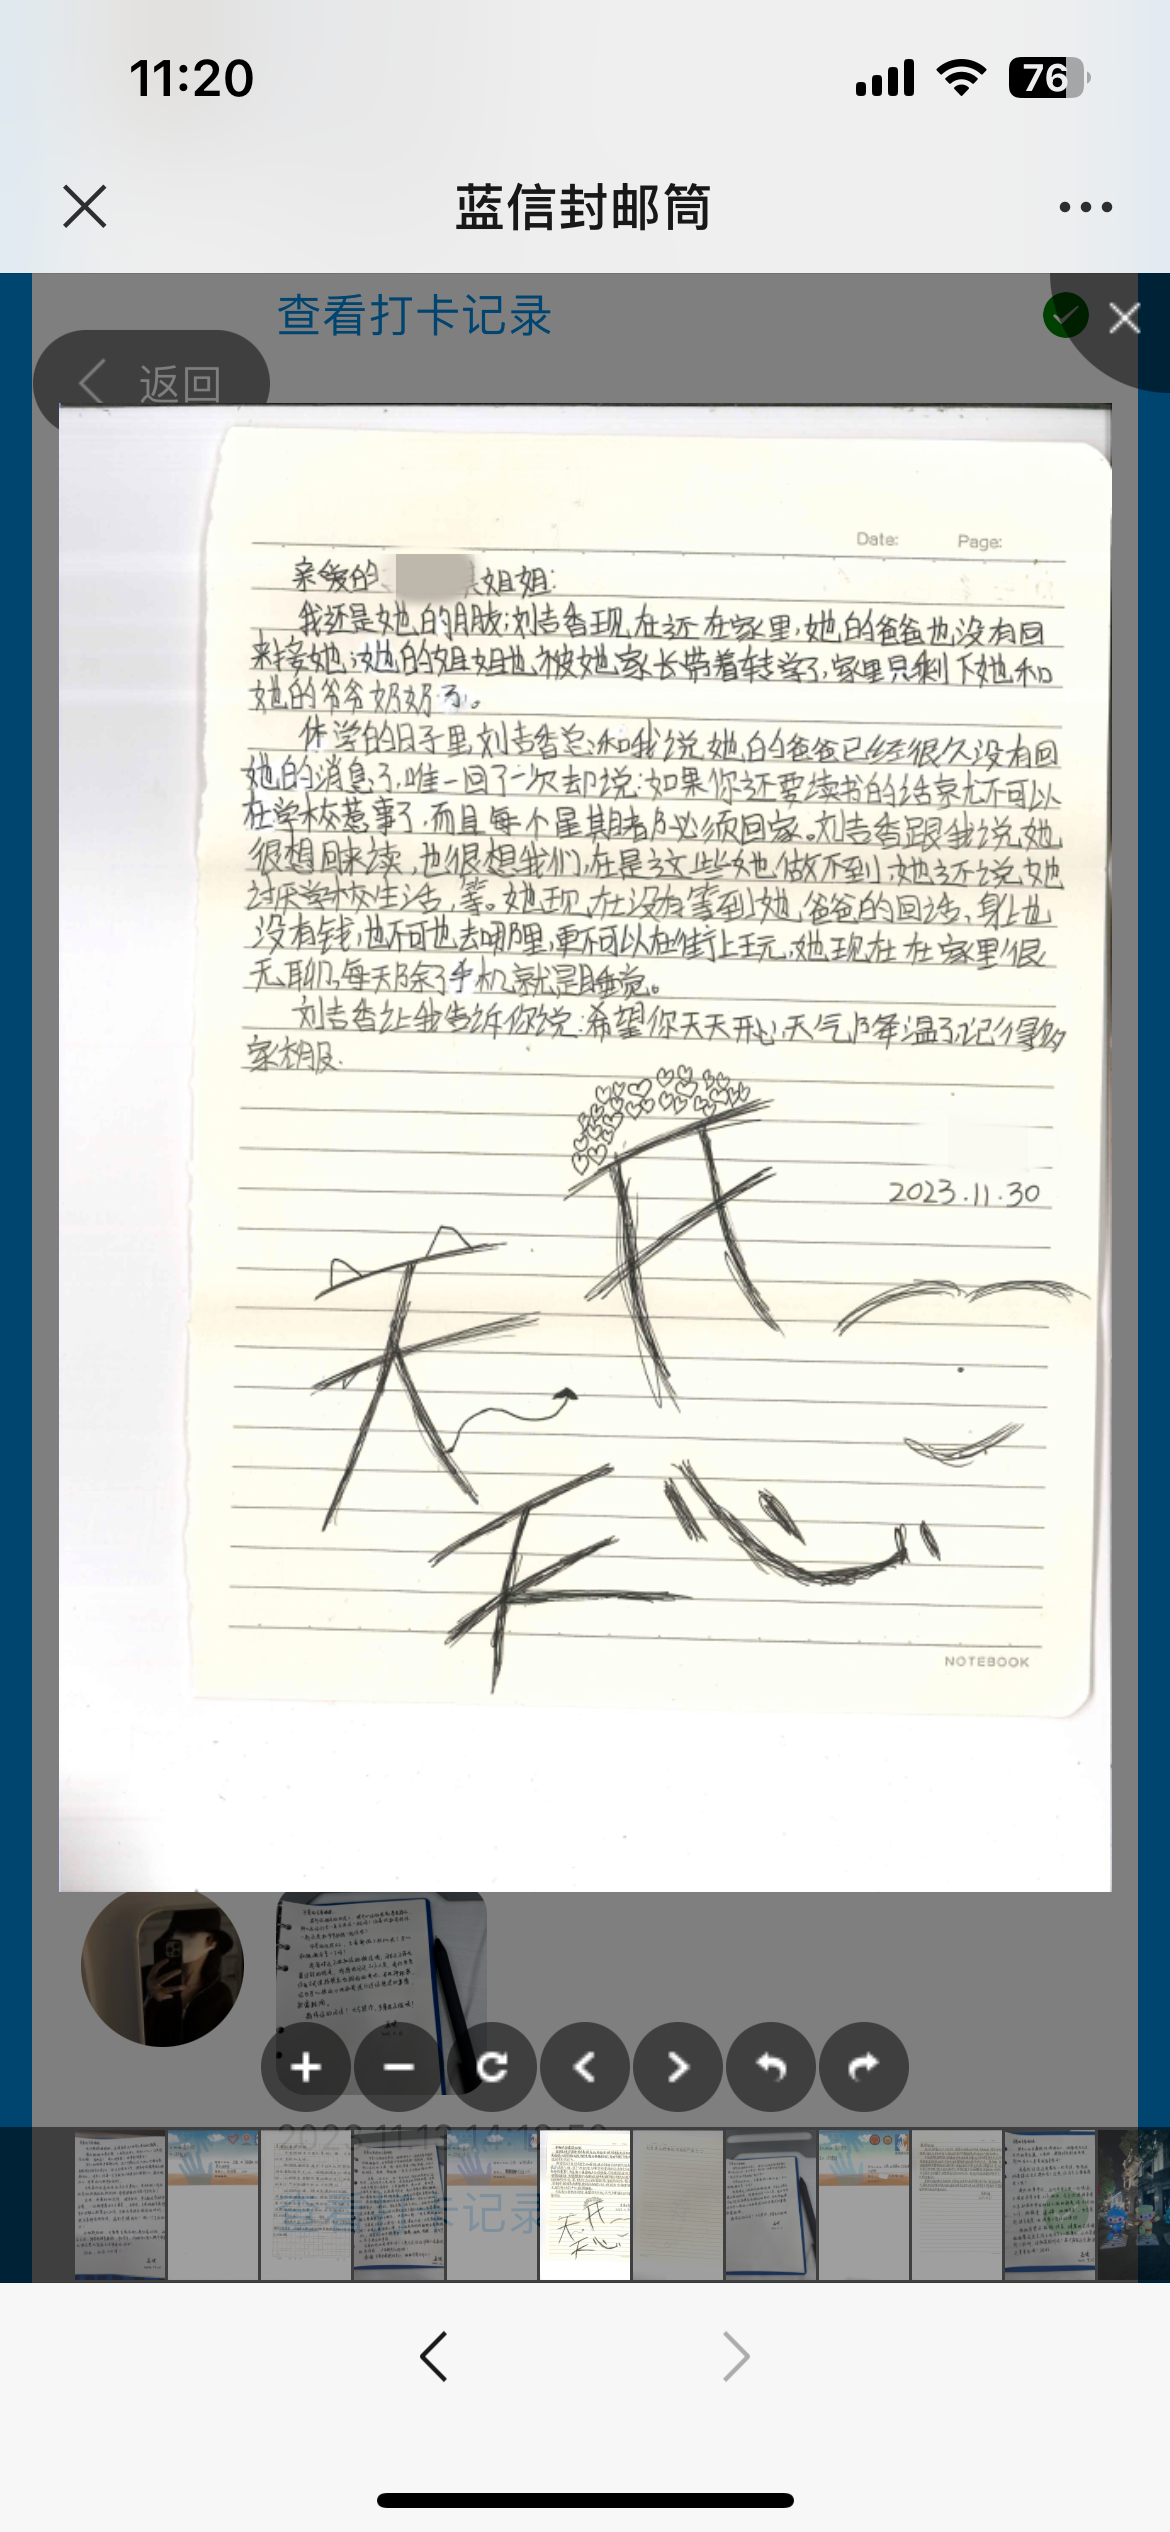 11:20
76
蓝信封邮筒
查看打卡记录
返回
Date: Page:
亲爱的 姐姐:
我还是她的朋友;刘吉香现在还在家里,她的爸爸也没有回
来接她,她的姐姐也被她家长带着转学了,家里只剩下她和
她的爷爷奶奶了。
休学的日子里刘吉香总和我说她的爸爸已经很久没有回
她的消息了,唯一回了一次却说:如果你还要读书的话就不可以
在学校惹事了,而且每个星期都必须回家。刘吉香跟我说她
很想回来读,也很想我们,在是这些她做不到,她还说她
讨厌学校生活,等。她现在没有等到她爸爸的回话,身上也
没有钱,也不可也去哪里,更不可以在街上玩,她现在在家里很
无聊,每天除了手机就是睡觉。
刘吉香让我告诉你说:希望你天天开心,天气降温了记得多
家衣服.
2023.11.30
天
开
天
心
NOTEBOOK